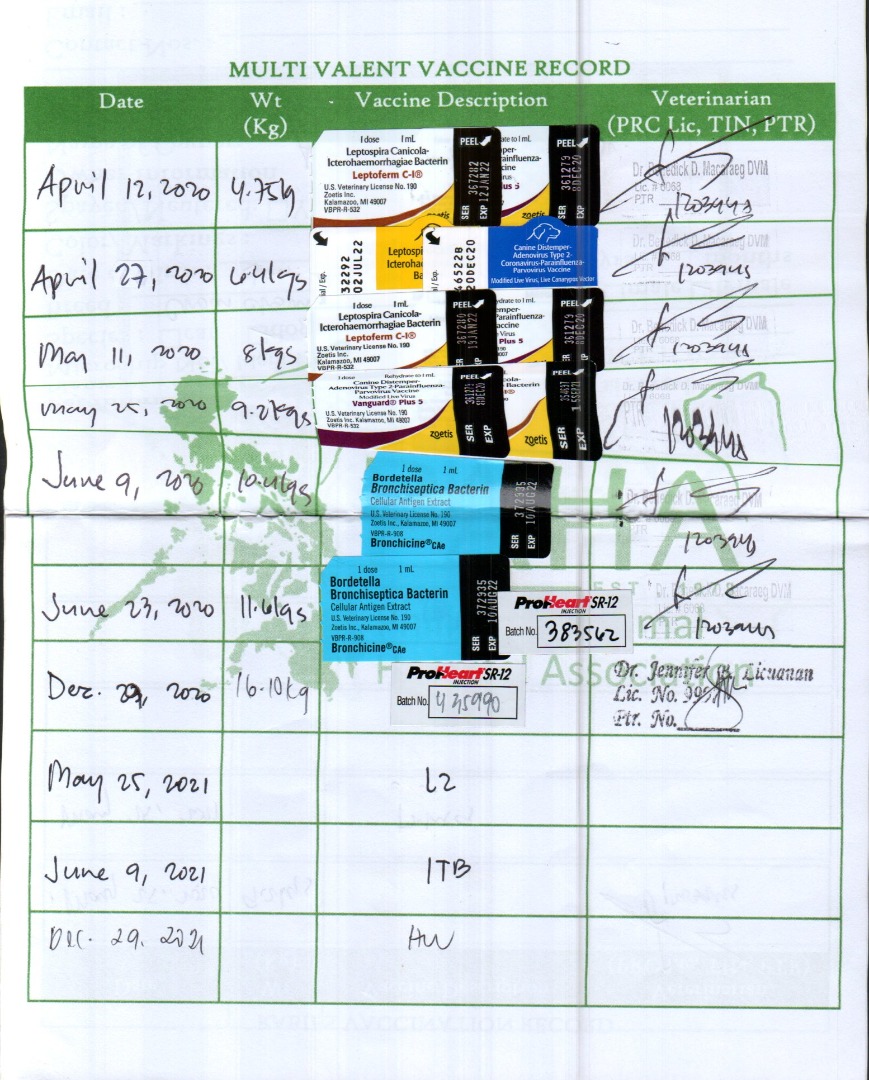 MULTI VALENT VACCINE RECORD
Date Wt (Kg) Vaccine Description Veterinarian (PRC Lic, TIN, PTR)
April 12, 2020 4.75kg
1 dose 1 mL
Leptospira Canicola-
Icterohaemorrhagiae Bacterin
Leptoferm C-I®
U.S. Veterinary License No. 190
Zoetis Inc.
Kalamazoo, MI 49007
VBPR-R-532
zoetis
PEEL
SER 367282
EXP 12JAN22
PEEL
SER 361279
EXP 8DEC20
Dr. Benedick D. Macaraeg DVM
Lic. # 6068
PTR
April 27, 2020 6.4kgs
02JUL22
20DEC20
Canine Distemper-
Adenovirus Type 2-
Coronavirus-Parainfluenza-
Parvovirus Vaccine
Modified Live Virus, Live Canarypox Vector
May 11, 2020 8kgs
1 dose 1 mL
Leptospira Canicola-
Icterohaemorrhagiae Bacterin
Leptoferm C-I®
U.S. Veterinary License No. 190
Zoetis Inc.
Kalamazoo, MI 49007
VBPR-R-532
zoetis
PEEL
Plus 5
PEEL
May 25, 2020 9.2kgs
1 dose Rehydrate to 1 mL
Canine Distemper-
Adenovirus Type 2-Parainfluenza-
Parvovirus Vaccine
Modified Live Virus
Vanguard® Plus 5
U.S. Veterinary License No. 190
Zoetis Inc. Kalamazoo, MI 49007
VBPR-R-532
zoetis
PEEL
SER
EXP
zoetis
PEEL
SER
EXP
June 9, 2020
1 dose 1 mL
Bordetella
Bronchiseptica Bacterin
Cellular Antigen Extract
U.S. Veterinary License No. 190
Zoetis Inc., Kalamazoo, MI 49007
VBPR-R-908
Bronchicine®CAe
SER 372935
EXP 10AUG22
June 23, 2020 11.6kgs
1 dose 1 mL
Bordetella
Bronchiseptica Bacterin
Cellular Antigen Extract
U.S. Veterinary License No. 190
Zoetis Inc., Kalamazoo, MI 49007
VBPR-R-908
Bronchicine®CAe
SER 372935
EXP 10AUG22
ProHeart SR-12
INJECTION
Batch No. 383562
Dec. 29, 2020 16.10kg
ProHeart SR-12
INJECTION
Batch No. 435990
Dr. Jennifer B. Licuanan
Lic. No.
Ptr. No.
May 25, 2021 L2
June 9, 2021 ITB
Dec. 29. 2021 HW